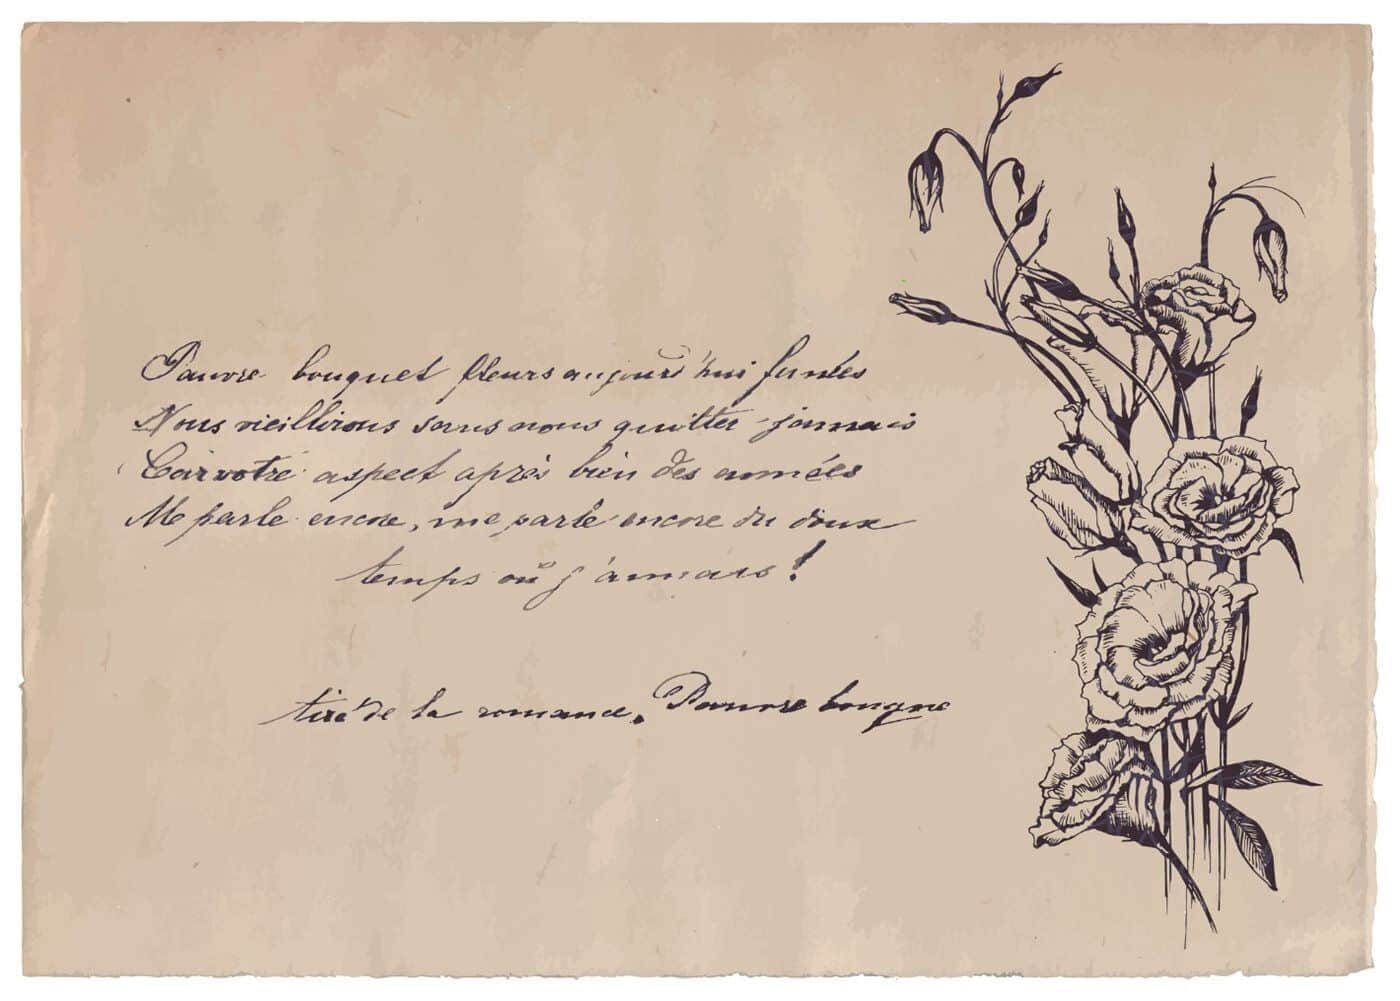 Pauvre bouquet fleurs aujourd'hui fanées
Nous vieillirons sans nous quitter jamais
Car votre aspect après bien des années
Me parle encore, me parle encore du doux
temps où j'aimais!
tiré de la romance. Pauvre bouque